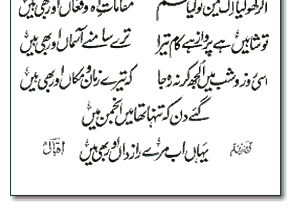 اگر کھو گیا اک نشیمن تو کیا غم مقاماتِ آہ و فغاں اور بھی ہیں
تو شاہیں ہے پرواز ہے کام تیرا ترے سامنے آسماں اور بھی ہیں
اسی روز و شب میں الجھ کر نہ رہ جا کہ تیرے زمان و مکاں اور بھی ہیں
گئے دن کہ تنہا تھا میں انجمن میں
یہاں اب مرے رازداں اور بھی ہیں اقبال